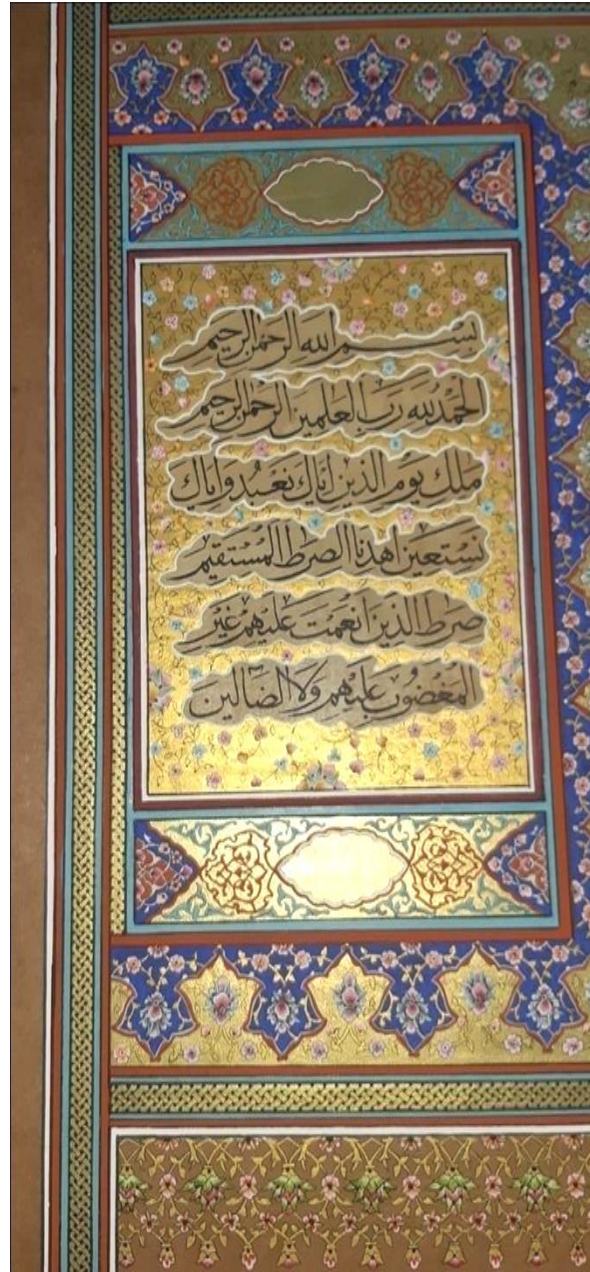 بِسْمِ اللهِ الرَّحْمٰنِ الرَّحِيمِ
اَلْحَمْدُ لِلّٰهِ رَبِّ الْعٰلَمِينَ الرَّحْمٰنِ الرَّحِيمِ
مٰلِكِ يَوْمِ الدِّينِ اِيَّاكَ نَعْبُدُ وَاِيَّاكَ
نَسْتَعِينُ اِهْدِنَا الصِّرٰطَ الْمُسْتَقِيمَ
صِرٰطَ الَّذِينَ اَنْعَمْتَ عَلَيْهِمْ غَيْرِ
الْمَغْضُوبِ عَلَيْهِمْ وَلَا الضَّالِّينَ